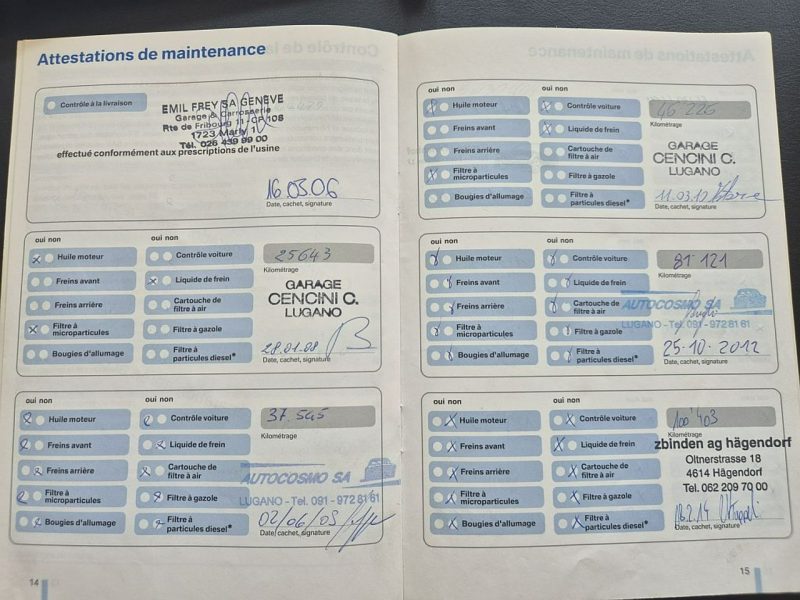 Attestations de maintenance
Contrôle à la livraison
EMIL FREY SA GENEVE
Garage & Carrosserie
Rte de Fribourg 11 - CP 108
1723 Marly 1
Tél. 026 439 99 00
effectué conformément aux prescriptions de l'usine
16.03.06
Date, cachet, signature
oui non
oui non
Huile moteur
Contrôle voiture
25643
Kilométrage
Freins avant
Liquide de frein
Freins arrière
Cartouche de
filtre à air
Filtre à
microparticules
Filtre à gazole
Bougies d'allumage
Filtre à
particules diesel*
GARAGE
CENCINI C.
LUGANO
28.01.08
Date, cachet, signature
oui non
oui non
Huile moteur
Contrôle voiture
37.545
Kilométrage
Freins avant
Liquide de frein
Freins arrière
Cartouche de
filtre à air
Filtre à
microparticules
Filtre à gazole
Bougies d'allumage
Filtre à
particules diesel*
AUTOCOSMO SA
LUGANO - Tel. 091 - 972 81 61
02/06/09
Date, cachet, signature
14
oui non
oui non
Huile moteur
Contrôle voiture
46 226
Kilométrage
Freins avant
Liquide de frein
Freins arrière
Cartouche de
filtre à air
Filtre à
microparticules
Filtre à gazole
Bougies d'allumage
Filtre à
particules diesel*
GARAGE
CENCINI C.
LUGANO
11.03.10
Date, cachet, signature
oui non
oui non
Huile moteur
Contrôle voiture
81 121
Kilométrage
Freins avant
Liquide de frein
Freins arrière
Cartouche de
filtre à air
Filtre à
microparticules
Filtre à gazole
Bougies d'allumage
Filtre à
particules diesel*
AUTOCOSMO SA
LUGANO - Tel. 091 - 972 81 61
25-10-2012
Date, cachet, signature
oui non
oui non
Huile moteur
Contrôle voiture
100'403
Kilométrage
Freins avant
Liquide de frein
Freins arrière
Cartouche de
filtre à air
Filtre à
microparticules
Filtre à gazole
Bougies d'allumage
Filtre à
particules diesel*
zbinden ag hägendorf
Oltnerstrasse 18
4614 Hägendorf
Tel. 062 209 70 00
18.2.14
Date, cachet, signature
15